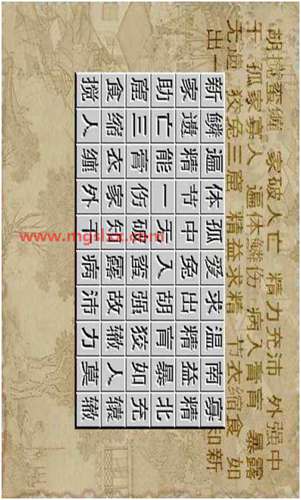 胡搅蛮缠 家破人亡 精力充沛 外强中
干 孤家寡人 遍体鳞伤 病入膏肓 暴露
无遗 狡兔三窟 精益求精 节衣缩食 如
出一
知新
新鳞遍体孤爱求温南寡
家遗精节中兔出精益精
助亡能一无入胡肓暴北
窟三膏伤破蛮强狡如充
食缩衣家知露故辙人辕
搅人缠外干病沛力莫辙